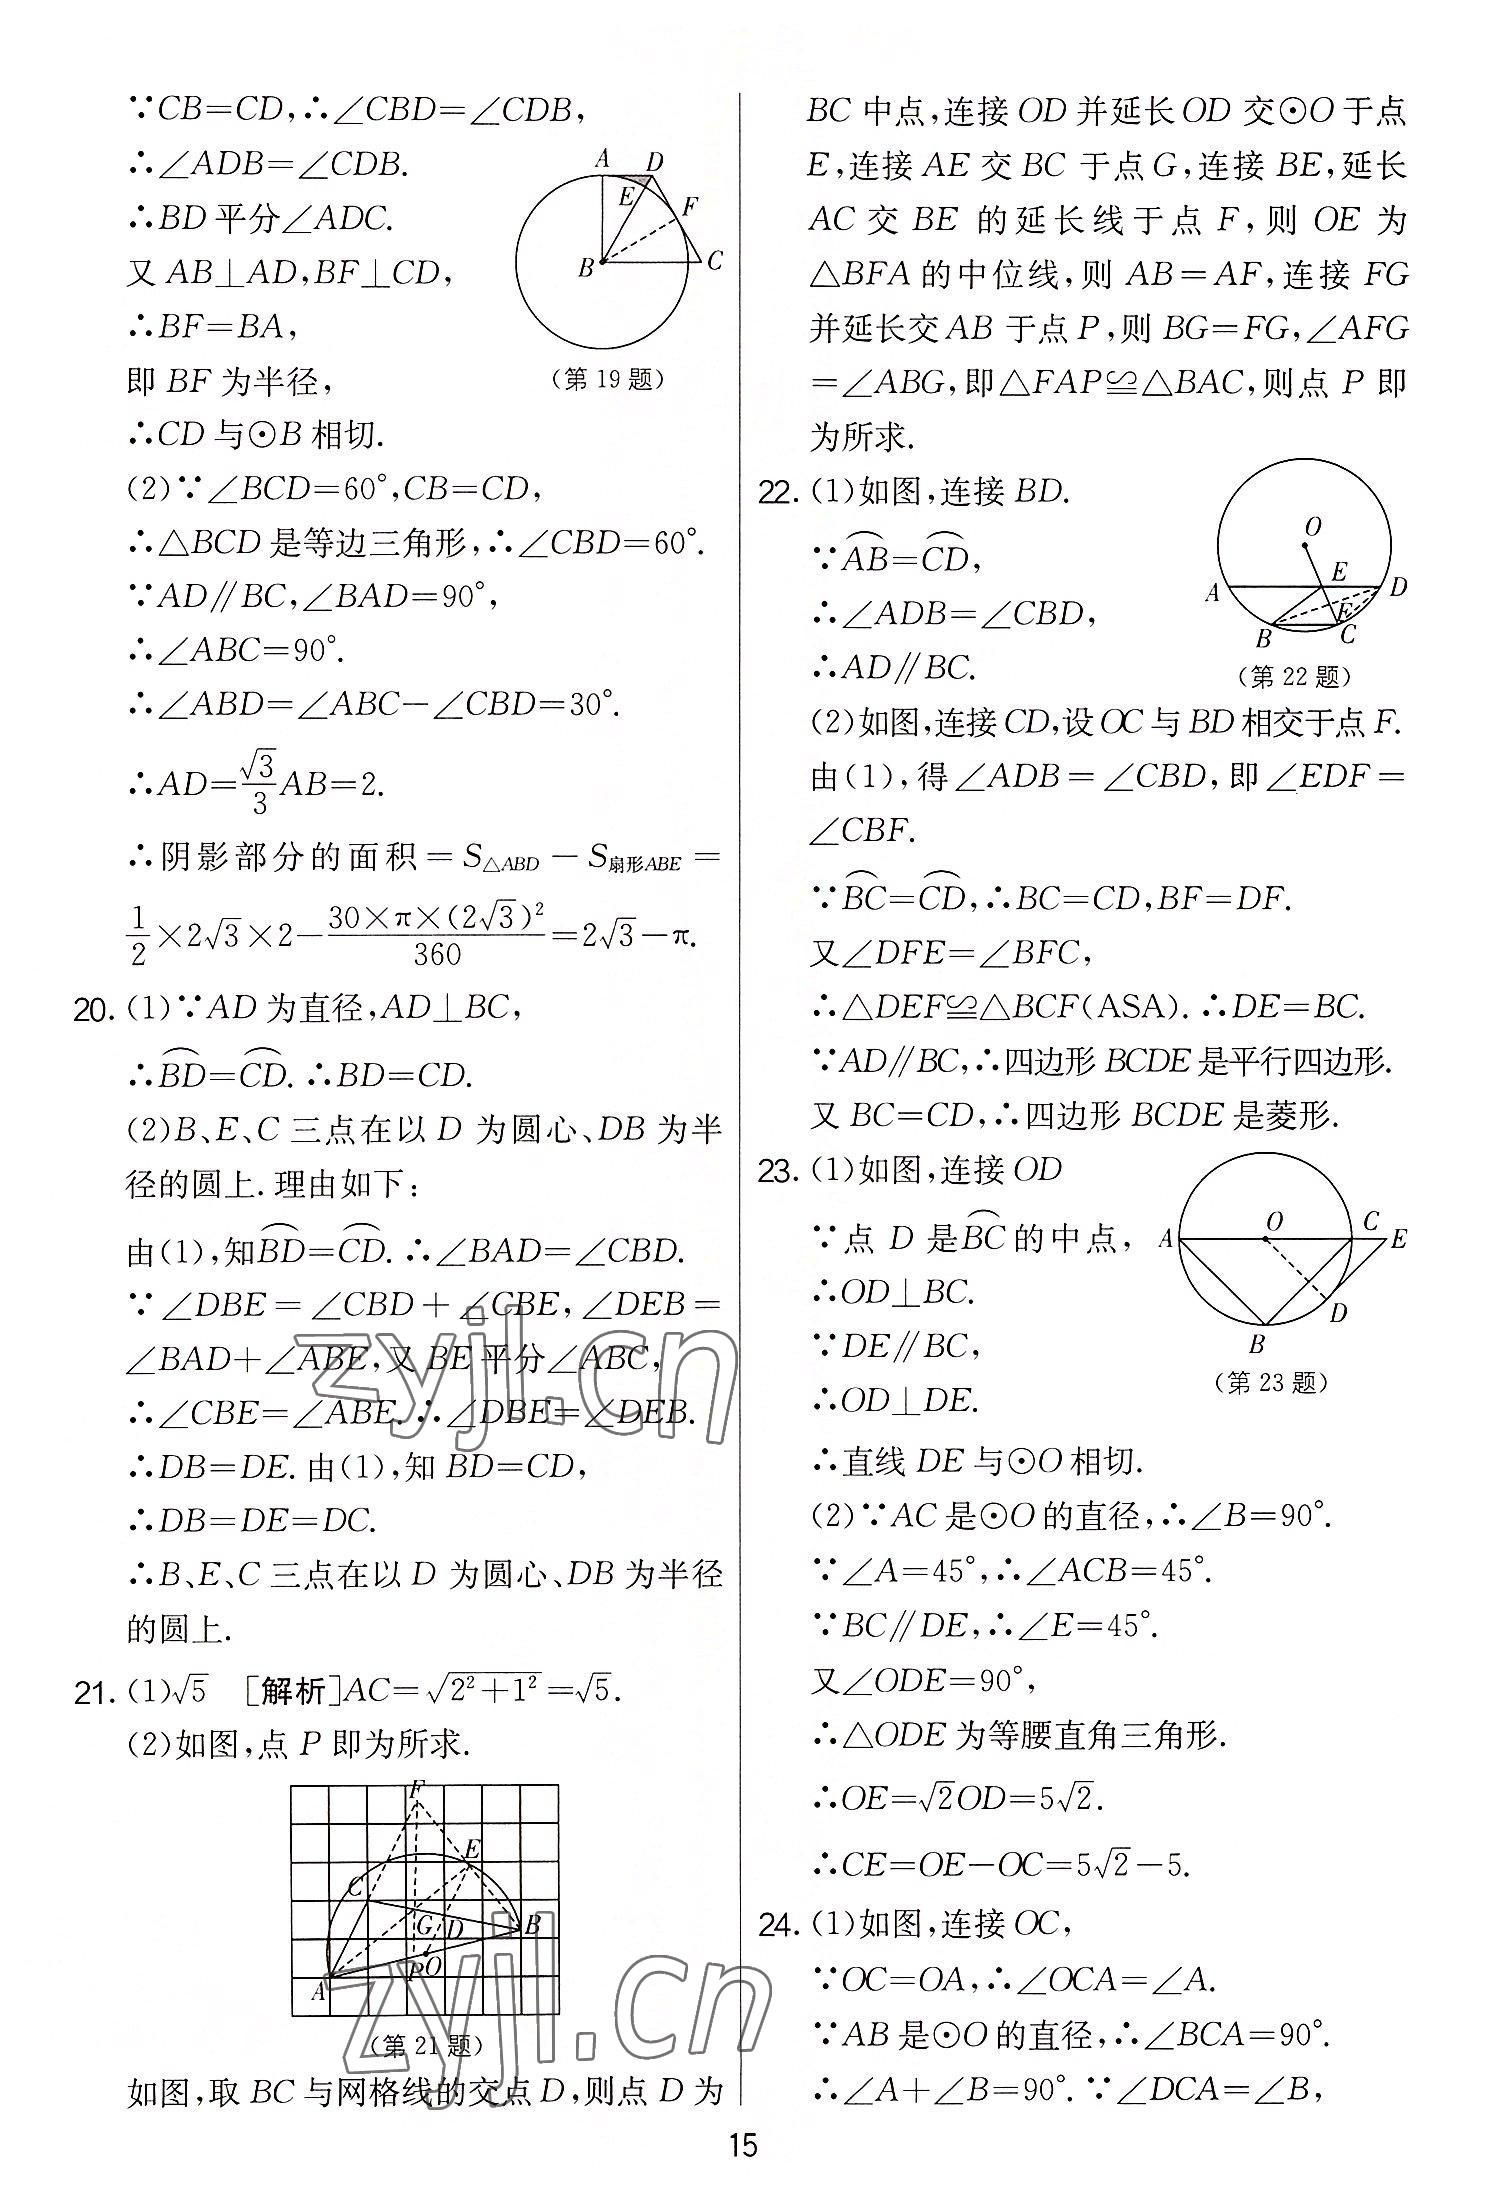 ∵CB=CD,∴∠CBD=∠CDB,
∴∠ADB=∠CDB.
∴BD平分∠ADC.
又AB⊥AD,BF⊥CD,
∴BF=BA,
即BF为半径,
∴CD与⊙B相切.
A D
E
F
B C
(第19题)
(2)∵∠BCD=60°,CB=CD,
∴△BCD是等边三角形,∴∠CBD=60°.
∵AD∥BC,∠BAD=90°,
∴∠ABC=90°.
∴∠ABD=∠ABC-∠CBD=30°.
∴AD=√3/3 AB=2.
∴阴影部分的面积=S△ABD-S扇形ABE=
1/2×2√3×2-30×π×(2√3)²/360=2√3-π.
20. (1)∵AD为直径,AD⊥BC,
∴⌒BD=⌒CD. ∴BD=CD.
(2)B、E、C三点在以D为圆心、DB为半
径的圆上.理由如下:
由(1),知⌒BD=⌒CD. ∴∠BAD=∠CBD.
∵∠DBE=∠CBD+∠CBE,∠DEB=
∠BAD+∠ABE,又BE平分∠ABC,
∴∠CBE=∠ABE. ∴∠DBE=∠DEB.
∴DB=DE. 由(1),知BD=CD,
∴DB=DE=DC.
∴B、E、C三点在以D为圆心、DB为半径
的圆上.
21. (1)√5 [解析]AC=√(2²+1²)=√5.
(2)如图,点P即为所求.
F
E
C
G D B
P O
A
(第21题)
如图,取BC与网格线的交点D,则点D为
BC中点,连接OD并延长OD交⊙O于点
E,连接AE交BC于点G,连接BE,延长
AC交BE的延长线于点F,则OE为
△BFA的中位线,则AB=AF,连接FG
并延长交AB于点P,则BG=FG,∠AFG
=∠ABG,即△FAP≌△BAC,则点P即
为所求.
22. (1)如图,连接BD.
∵⌒AB=⌒CD,
∴∠ADB=∠CBD,
∴AD∥BC.
O
E
A D
F
B C
(第22题)
(2)如图,连接CD,设OC与BD相交于点F.
由(1),得∠ADB=∠CBD,即∠EDF=
∠CBF.
∵⌒BC=⌒CD,∴BC=CD,BF=DF.
又∠DFE=∠BFC,
∴△DEF≌△BCF(ASA). ∴DE=BC.
∵AD∥BC,∴四边形BCDE是平行四边形.
又BC=CD,∴四边形BCDE是菱形.
23. (1)如图,连接OD
∵点D是⌒BC的中点,
∴OD⊥BC.
∵DE∥BC,
∴OD⊥DE.
∴直线DE与⊙O相切.
O C
A E
D
B
(第23题)
(2)∵AC是⊙O的直径,∴∠B=90°.
∵∠A=45°,∴∠ACB=45°.
∵BC∥DE,∴∠E=45°.
又∠ODE=90°,
∴△ODE为等腰直角三角形.
∴OE=√2OD=5√2.
∴CE=OE-OC=5√2-5.
24. (1)如图,连接OC,
∵OC=OA,∴∠OCA=∠A.
∵AB是⊙O的直径,∴∠BCA=90°.
∴∠A+∠B=90°. ∵∠DCA=∠B,
zyjl.cn
zyjl.cn
15